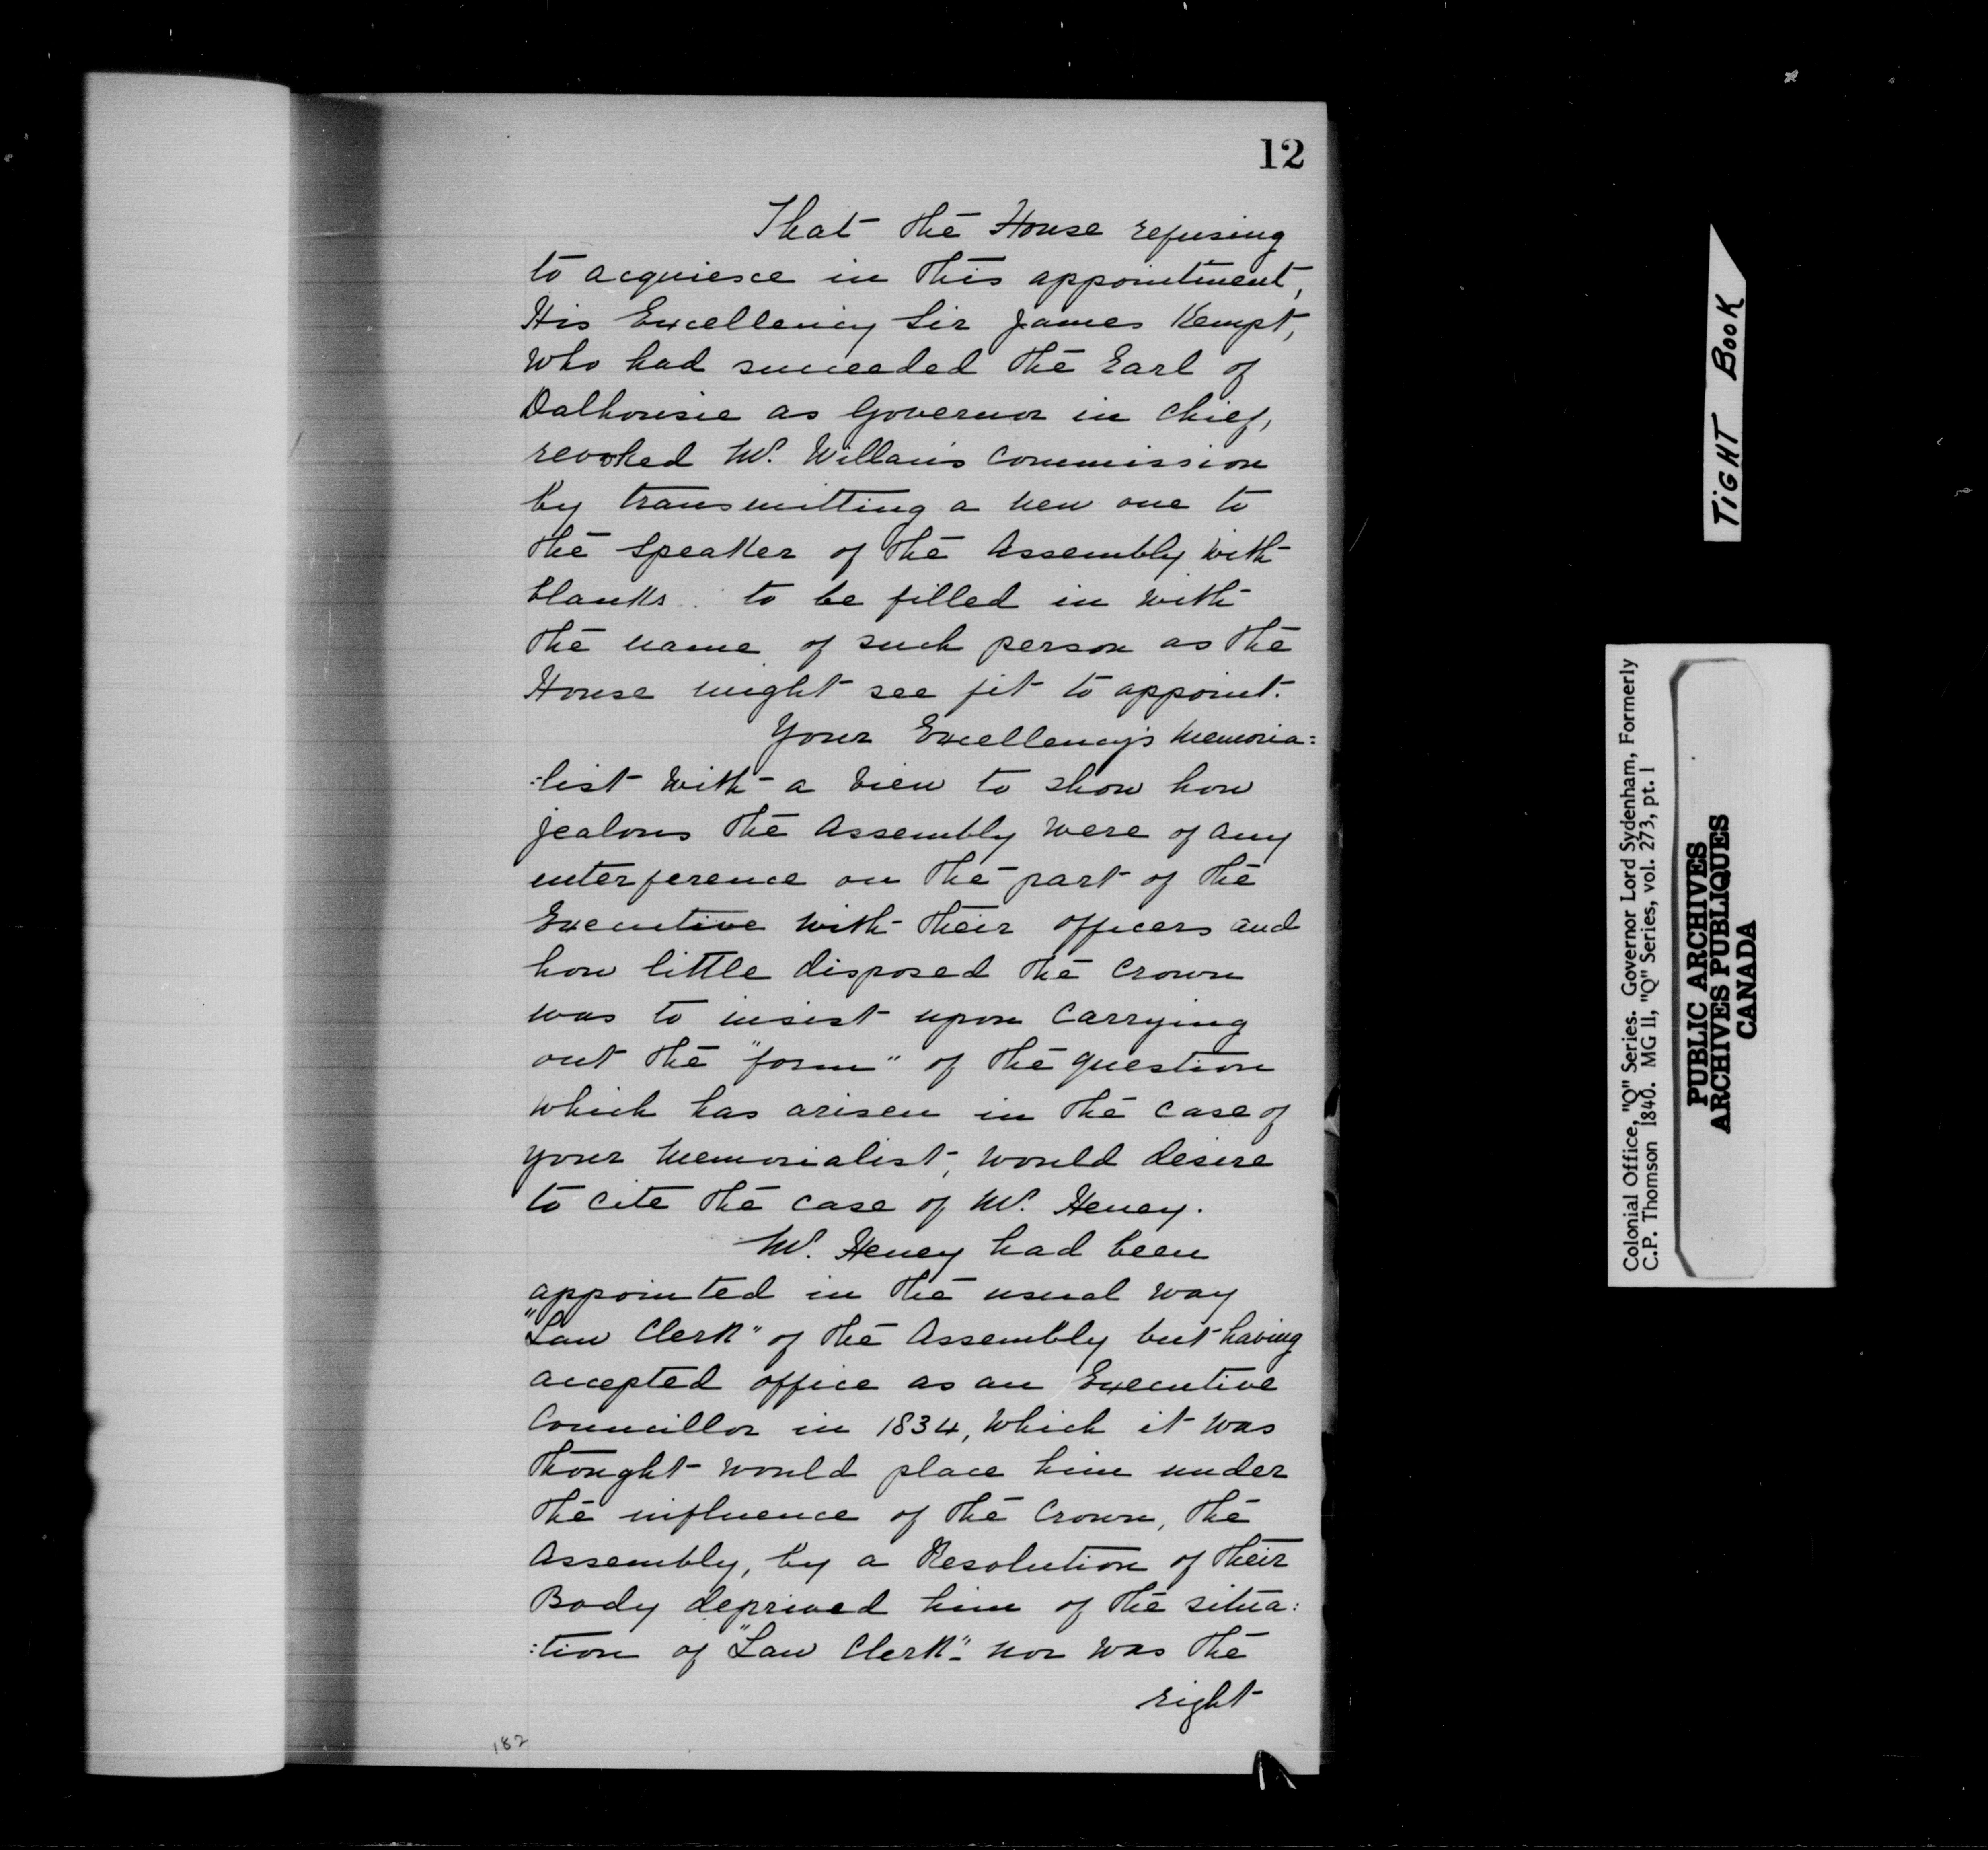 12
That the House refusing
to acquiesce in this appointment,
His Excellency Sir James Kempt,
who had succeeded the Earl of
Dalhousie as Governor in Chief,
revoked Mr. Willan's Commission
by transmitting a new one to
the Speaker of the Assembly with
blanks to be filled in with
the name of such person as the
House might see fit to appoint.
Your Excellency's Memoria=
=list with a view to show how
jealous the Assembly were of any
interference on the part of the
Executive with their officers and
how little disposed the Crown
was to insist upon carrying
out the "form" of the question
which has arisen in the case of
your Memorialist, would desire
to cite the case of Mr. Heney.
Mr. Heney had been
appointed in the usual way
"Law Clerk" of the Assembly but having
accepted office as an Executive
Councillor in 1834, which it was
thought would place him under
the influence of the Crown, the
Assembly, by a Resolution of their
Body deprived him of the situa:
:tion of "Law Clerk"- nor was the
right
182
TIGHT BOOK
Colonial Office, "Q" Series. Governor Lord Sydenham, Formerly
C.P. Thomson 1840. MG 11, "Q" Series, vol. 273, pt. 1
PUBLIC ARCHIVES
ARCHIVES PUBLIQUES
CANADA